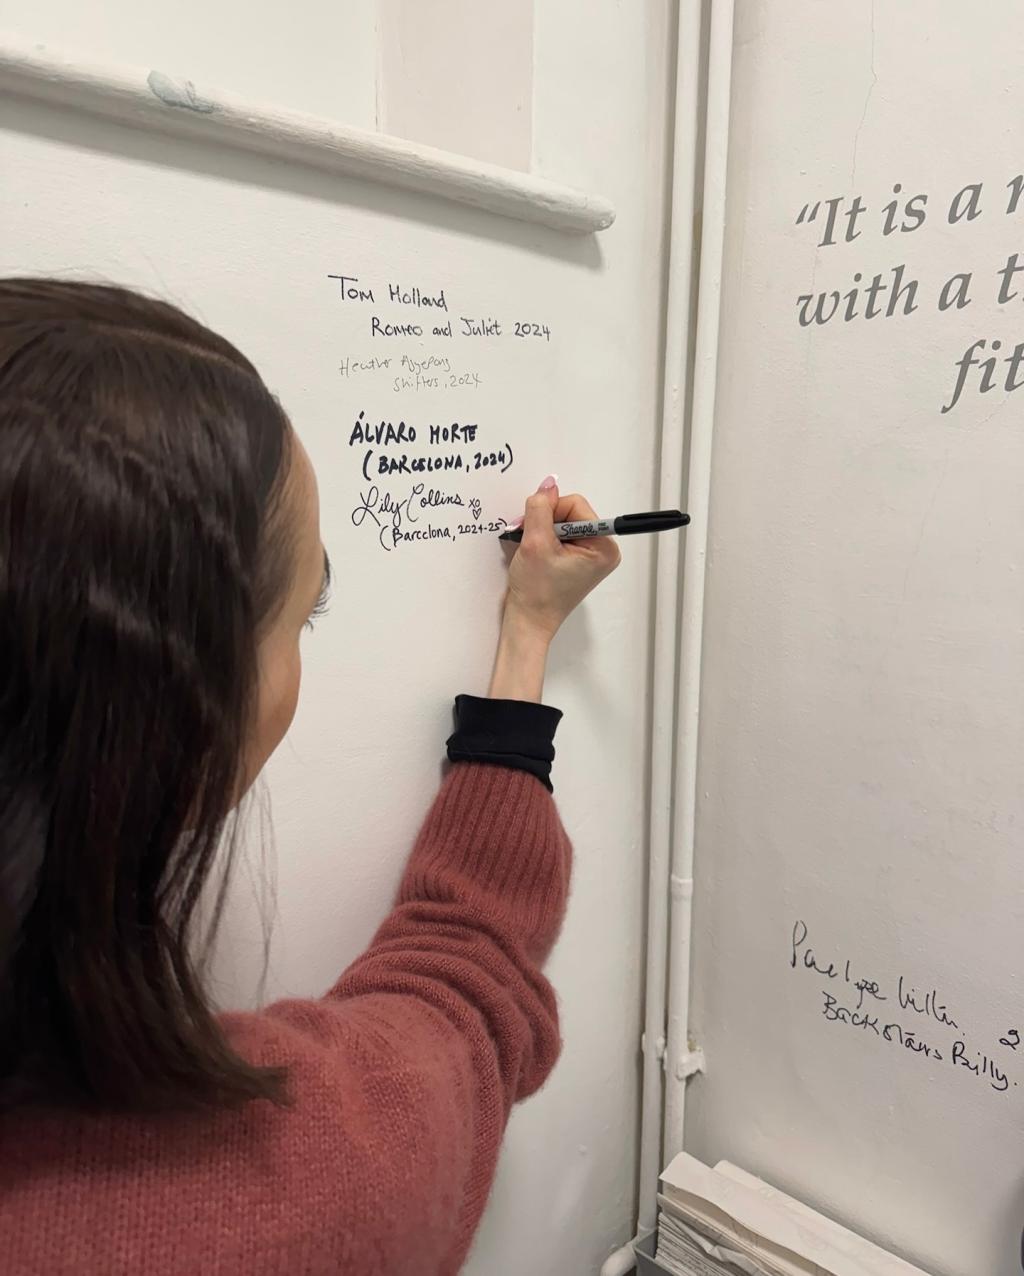 Tom Holland
Romeo and Juliet 2024
Heather Agyepong
Shifters, 2024
ÁLVARO MORTE
(BARCELONA, 2024)
Lily Collins xo
(Barcelona, 2024-25)
Sharpie
"It is a
with a
fit
Penelope Wilton. 2
Backstairs Billy.